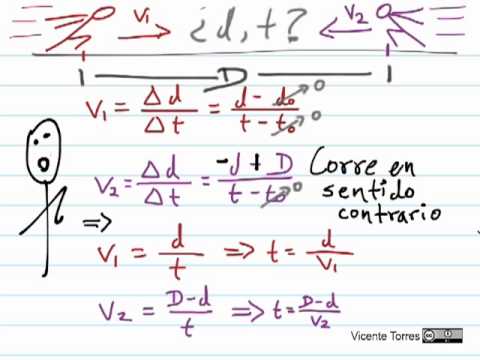 V₁ → ¿d, t? ← V₂
1 — D — 1
V₁ = Δd/Δt = (d - d₀)/(t - t₀) 0 0
V₂ = Δd/Δt = (-d + D)/(t - t₀) 0 Corre en sentido contrario
⇒
V₁ = d/t ⇒ t = d/V₁
V₂ = (D-d)/t ⇒ t = (D-d)/V₂
Vicente Torres cc